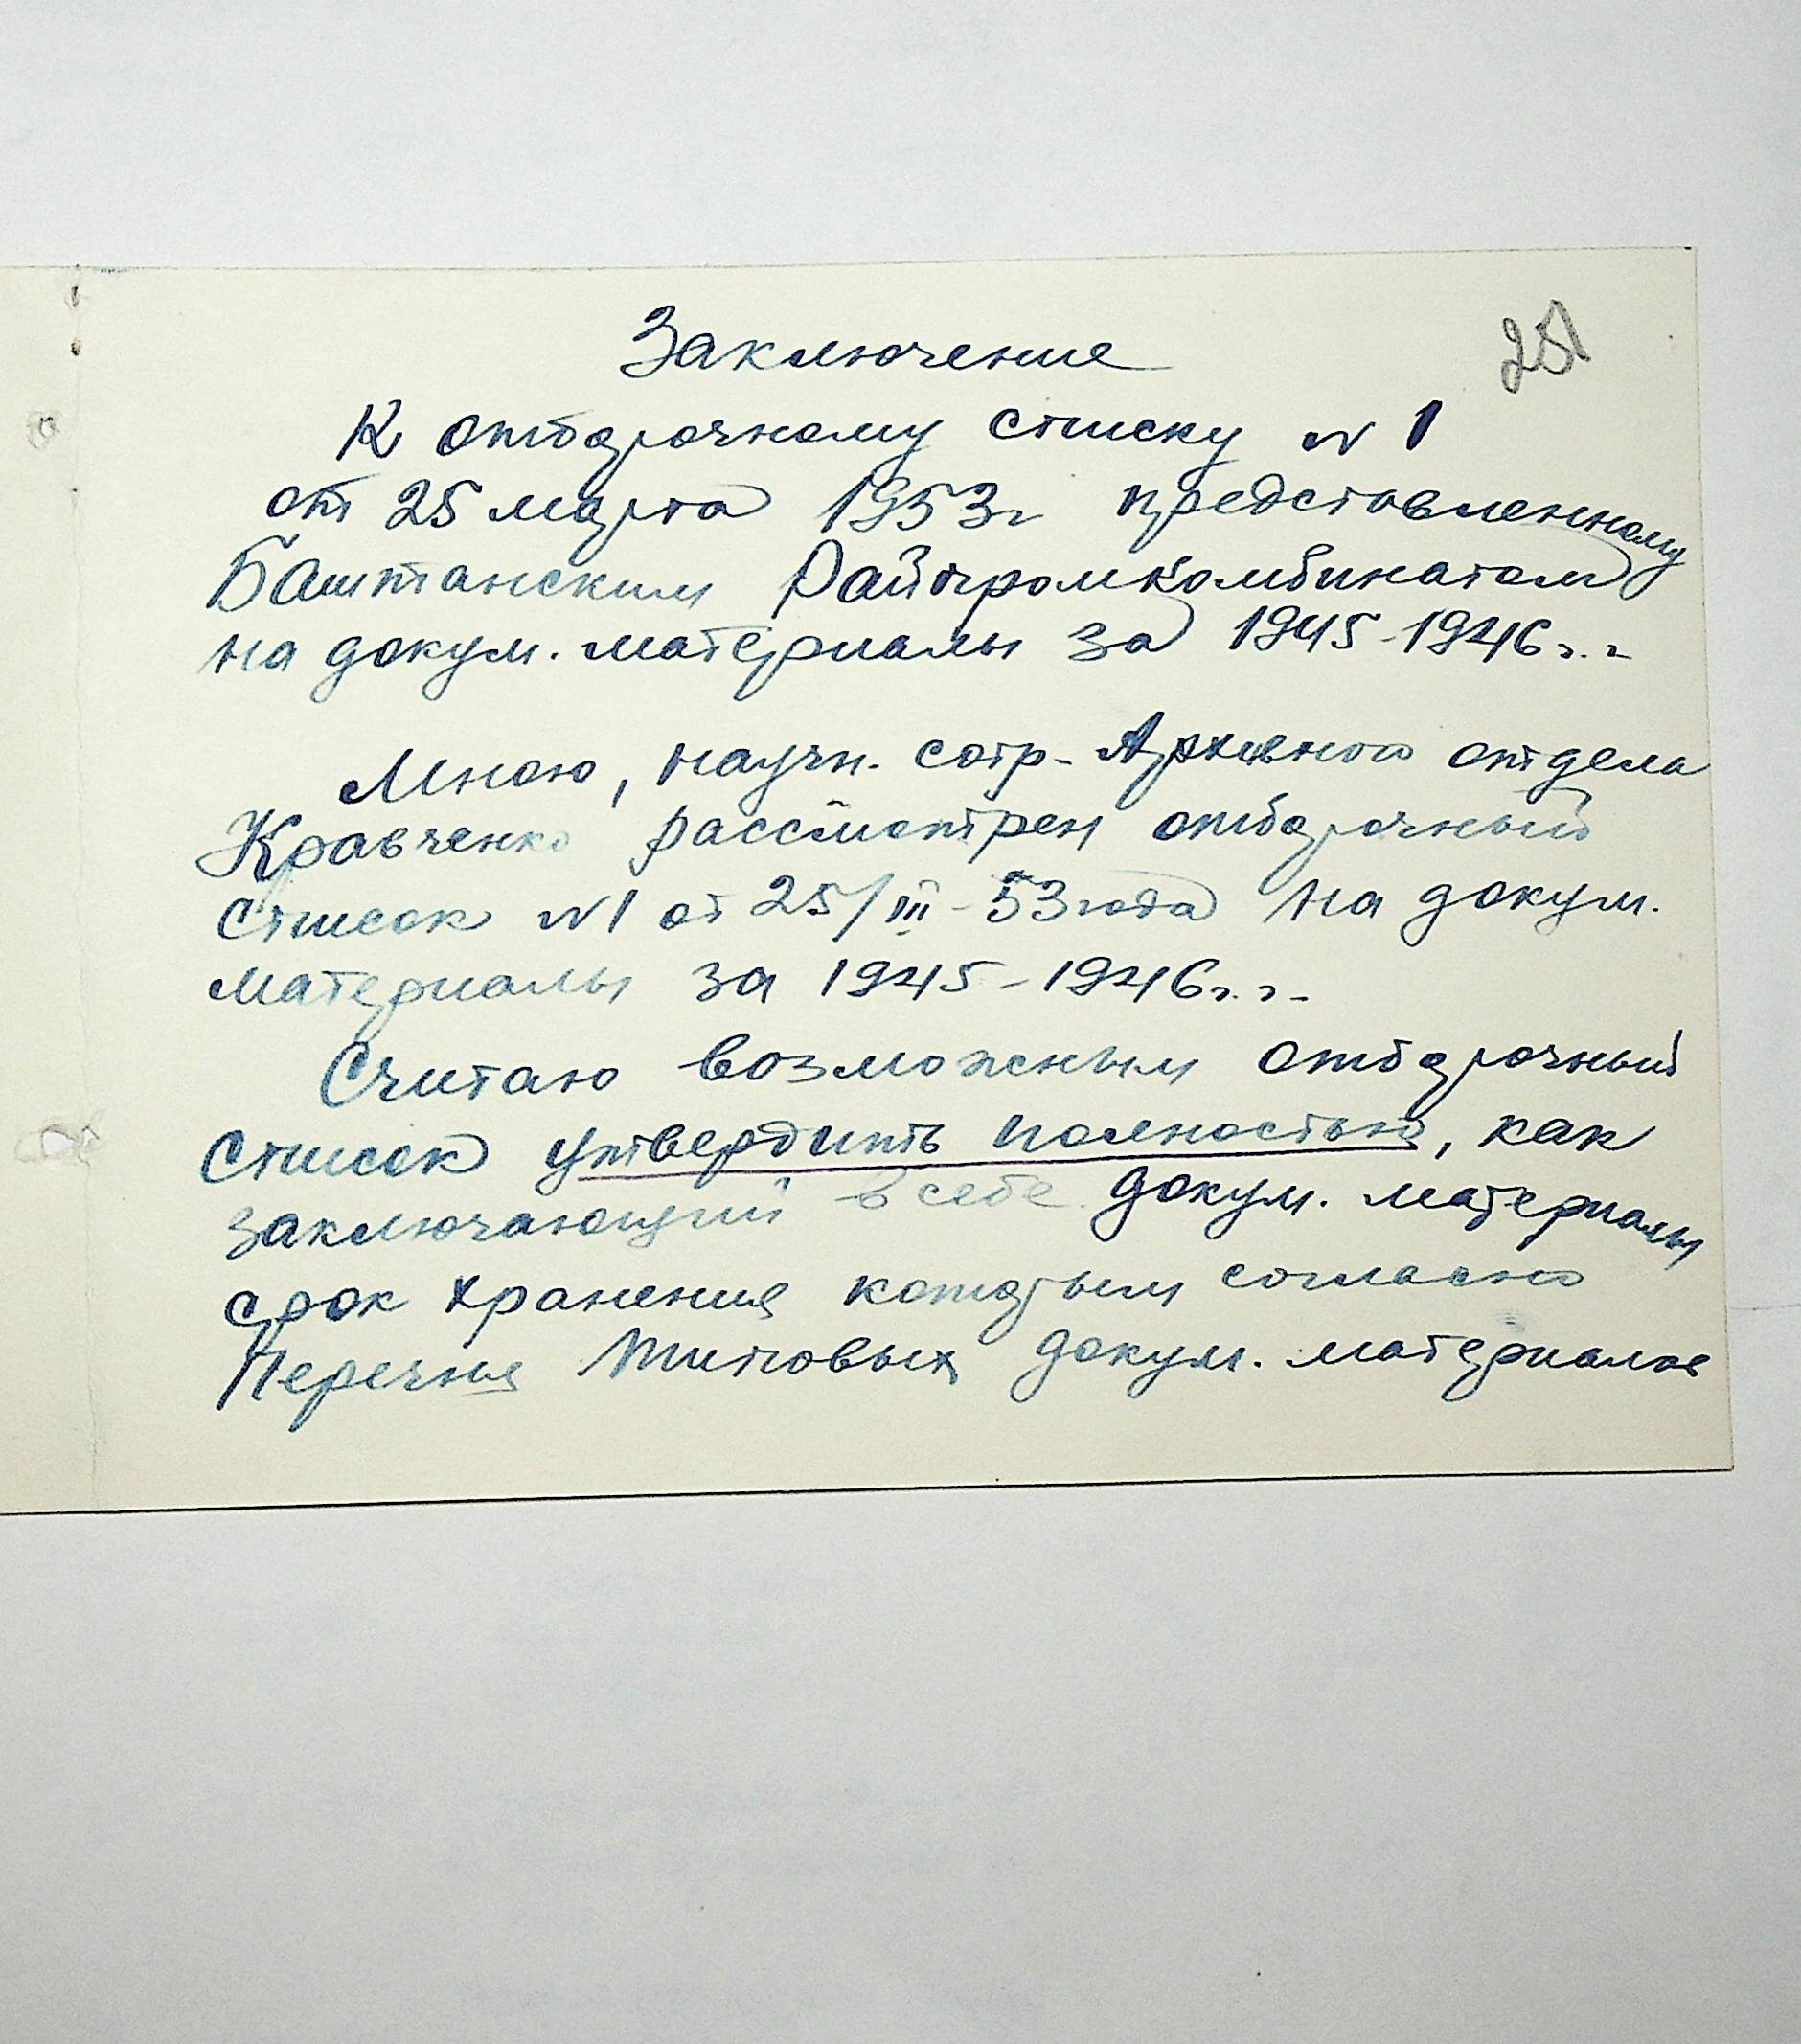 Заключение
К отборочному списку N 1
от 25 марта 1953г представленному
Баштанским Райпромкомбинатом
на докум. материалы за 1945-1946 г.г.
Мною, научн. сотр. Архивного отдела
Кравченко рассмотрен отборочный
список N1 от 25/III-53 года на докум.
материалы за 1945-1946 г.г.
Считаю возможным отборочный
список утвердить полностью, как
заключающий в себе докум. материалы
срок хранения которым согласно
Перечня типовых докум. материалов